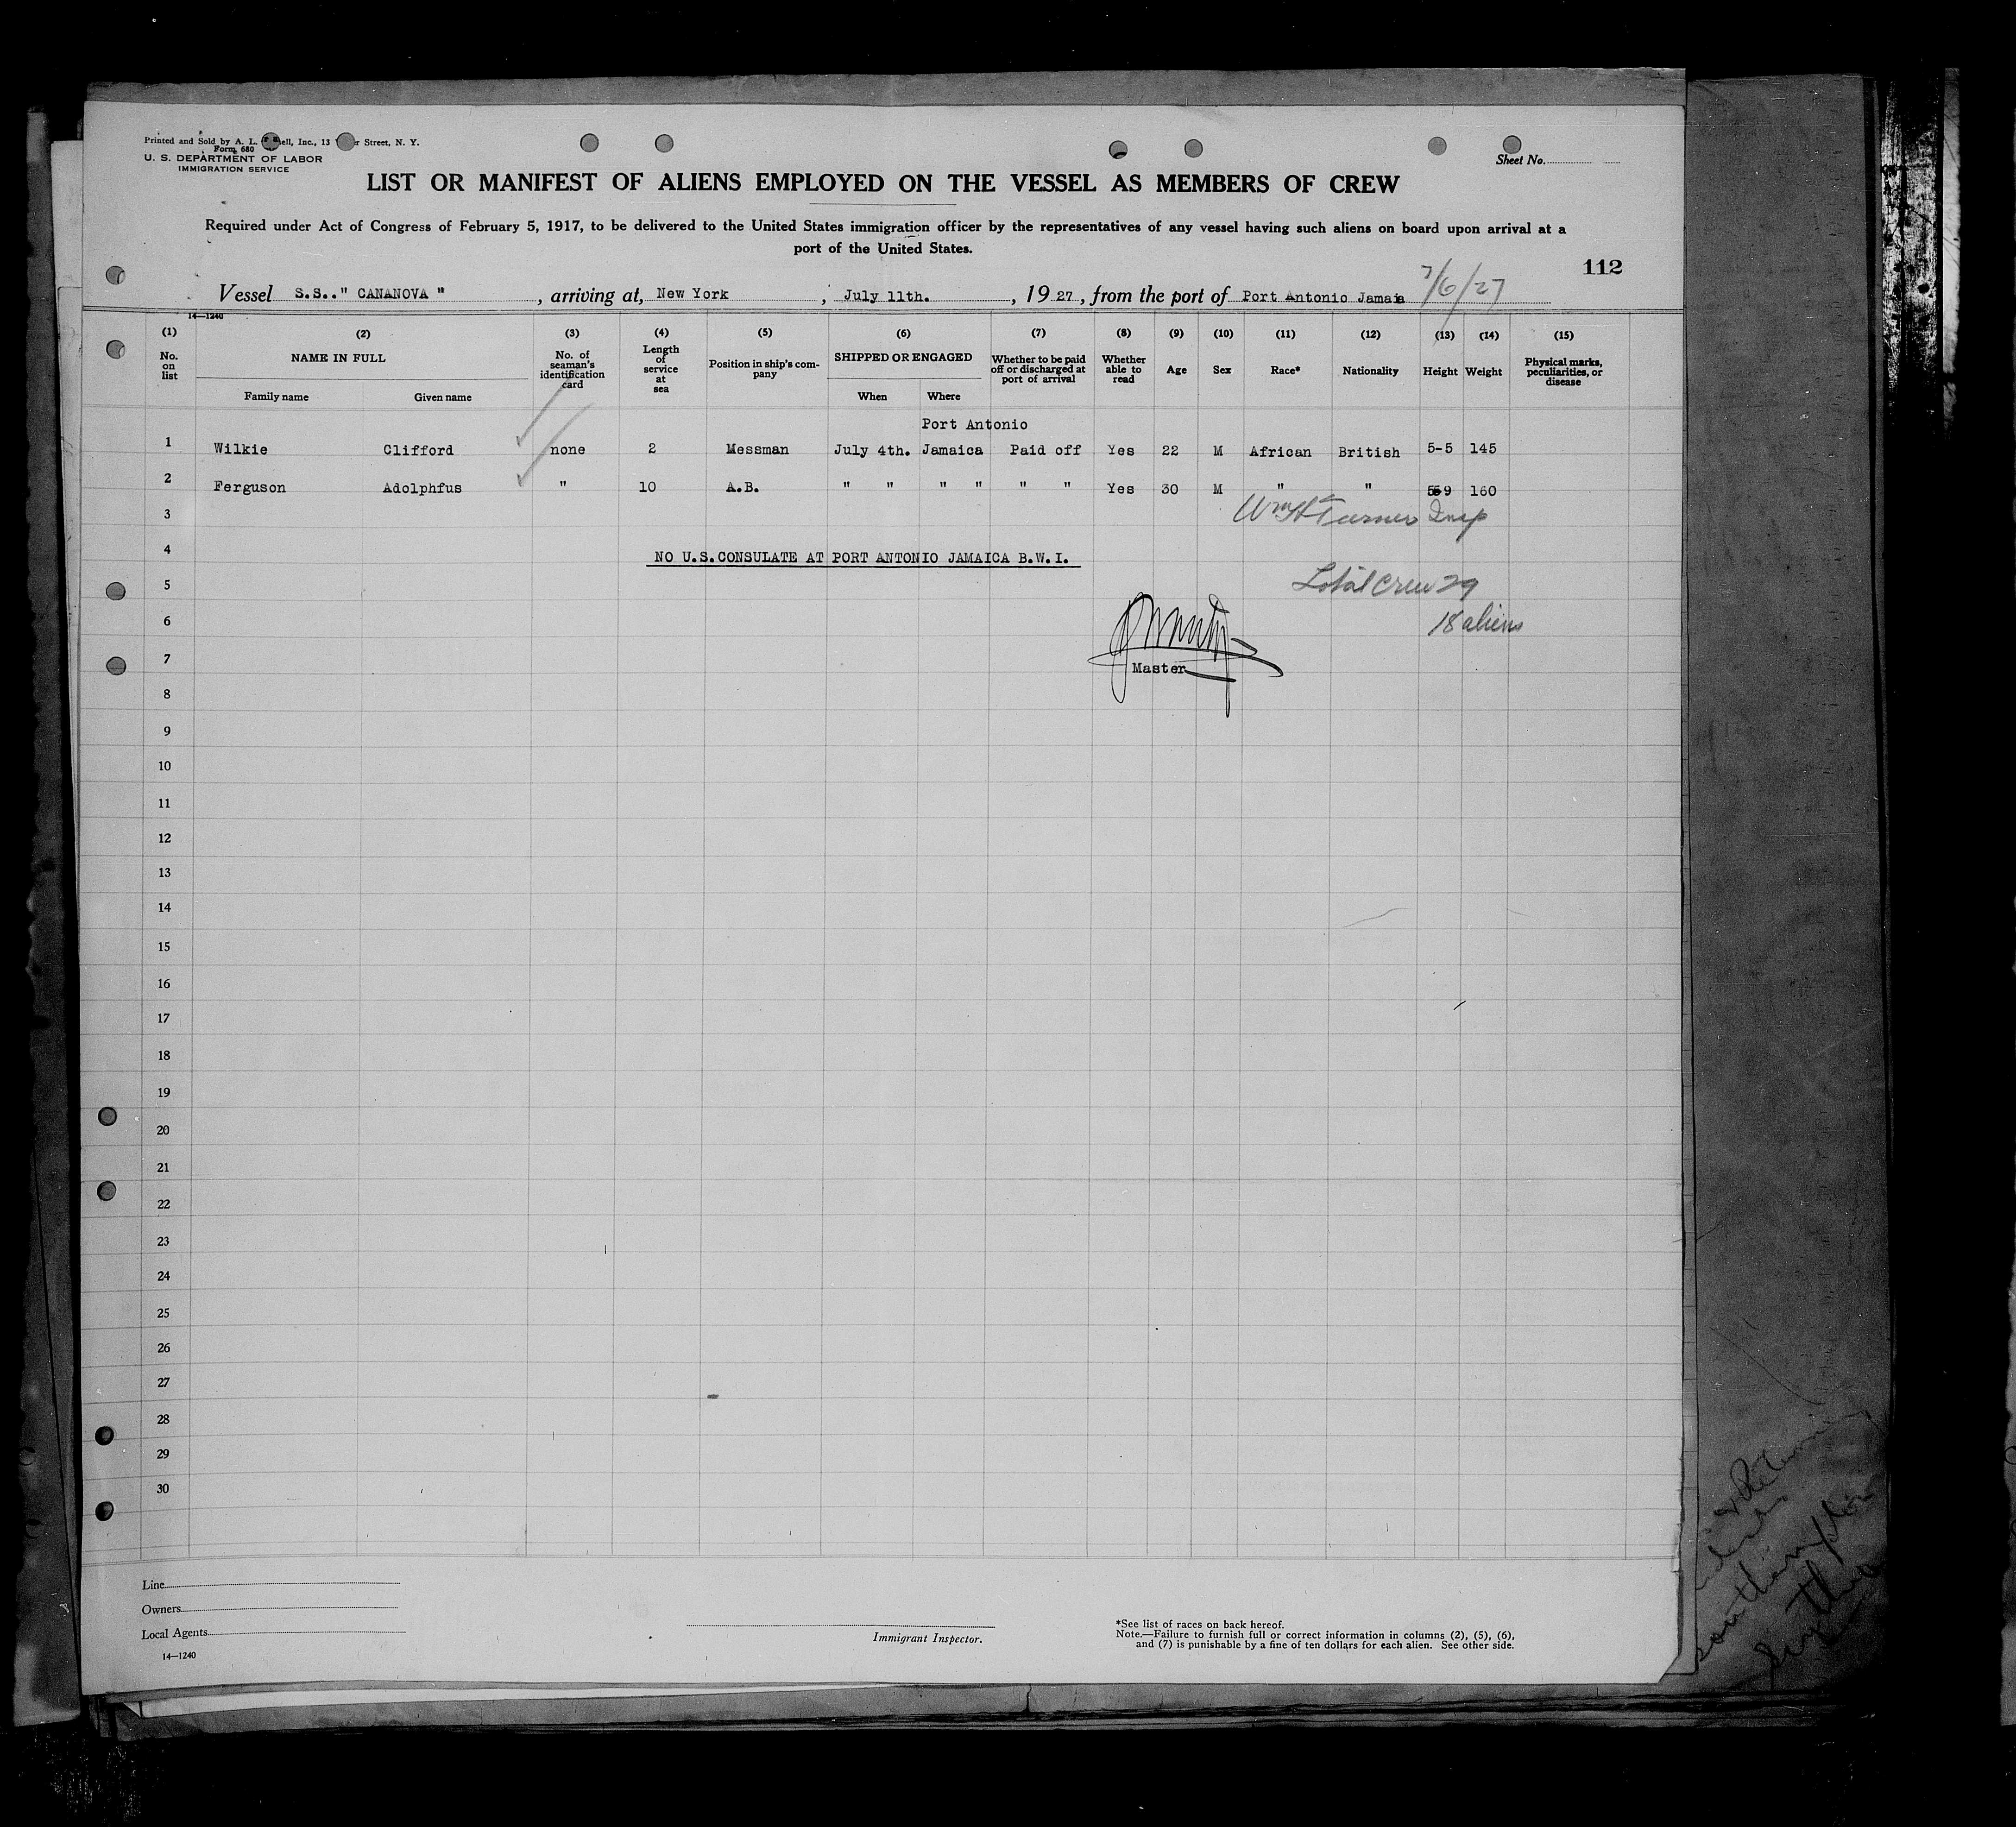 Printed and Sold by A. L. ell, Inc., 13 r Street, N. Y.
Form 680
U. S. DEPARTMENT OF LABOR
IMMIGRATION SERVICE
Sheet No.
LIST OR MANIFEST OF ALIENS EMPLOYED ON THE VESSEL AS MEMBERS OF CREW
Required under Act of Congress of February 5, 1917, to be delivered to the United States immigration officer by the representatives of any vessel having such aliens on board upon arrival at a
port of the United States.
112
Vessel S.S.." CANANOVA ", arriving at, New York, July 11th., 1927, from the port of Port Antonio Jamaia 7/6/27
14—1240
(1) (2) (3) (4) (5) (6) (7) (8) (9) (10) (11) (12) (13) (14) (15)
No. on list NAME IN FULL No. of seaman's identification card Length of service at sea Position in ship's company SHIPPED OR ENGAGED Whether to be paid off or discharged at port of arrival Whether able to read Age Sex Race* Nationality Height Weight Physical marks, peculiarities, or disease
Family name Given name When Where
Port Antonio
1 Wilkie Clifford none 2 Messman July 4th. Jamaica Paid off Yes 22 M African British 5-5 145
2 Ferguson Adolphfus " 10 A.B. " " " " " " Yes 30 M " " 5 9 160
3 Wm H Turner Insp
4 NO U.S.CONSULATE AT PORT ANTONIO JAMAICA B.W.I.
5 Total Crew 29
6 18 aliens
7 Master
8
9
10
11
12
13
14
15
16
17
18
19
20
21
22
23
24
25
26
27
28
29
30
Line
Owners
Local Agents
14—1240
Immigrant Inspector.
*See list of races on back hereof.
Note.—Failure to furnish full or correct information in columns (2), (5), (6),
and (7) is punishable by a fine of ten dollars for each alien. See other side.
southampton